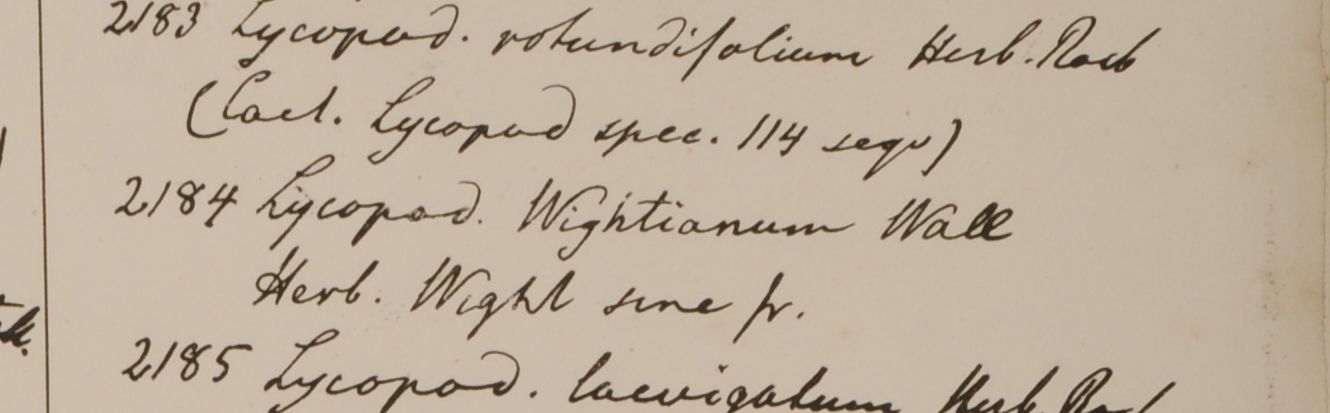 2183 Lycopod. rotundifolium Herb. Roxb
(Cael. Lycopod spec. 114 seqv)
2184 Lycopod. Wightianum Wall
Herb. Wight sine fr.
2185 Lycopod. laevigatum Herb. Roxb